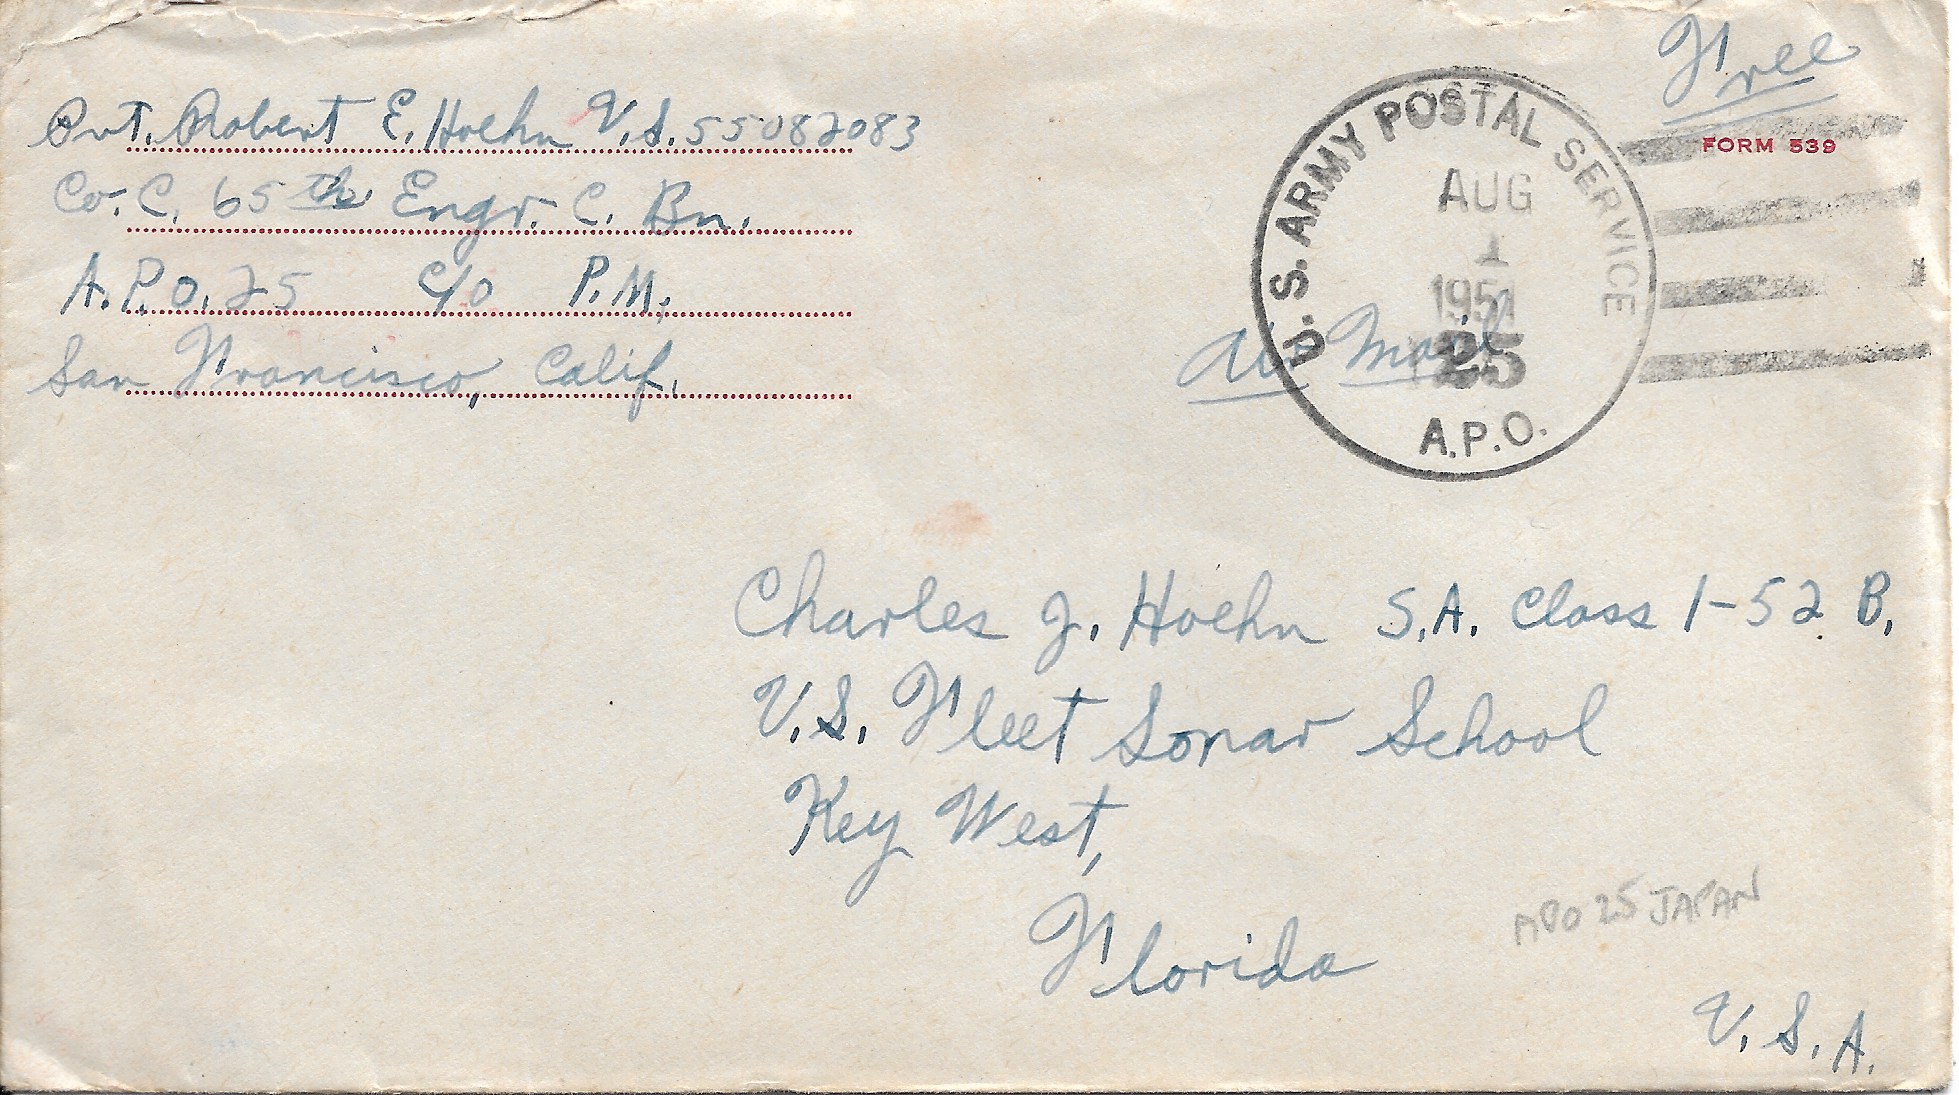 Pvt. Robert E. Hoehn U.S. 55082083
Co. C. 65th Engr. C. Bn.
A.P.O. 25 c/o P.M.
San Francisco, Calif.
Free
FORM 539
U.S. ARMY POSTAL SERVICE
AUG
1
1951
25
A.P.O.
Air Mail
Charles J. Hoehn S.A. Class 1-52 B.
U.S. Fleet Sonar School
Key West,
Florida
APO 25 JAPAN
U.S.A.